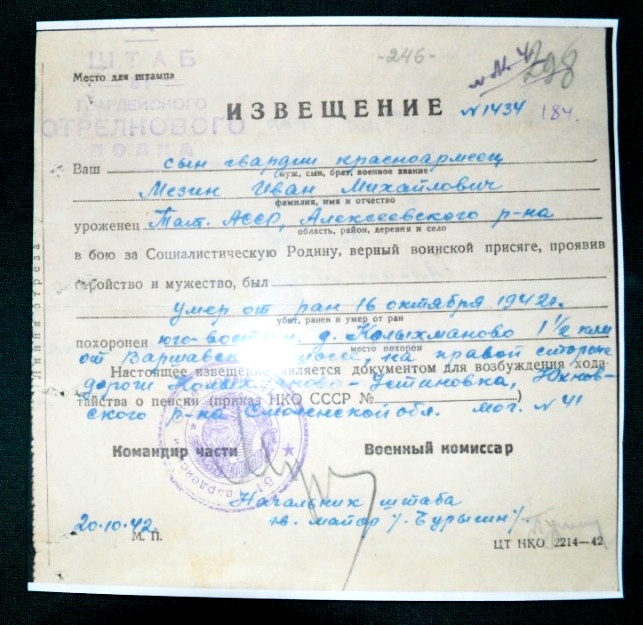 ШТАБ
-246-
298
Место для штампа
ГВАРДЕЙСКОГО
ИЗВЕЩЕНИЕ N1434 184.
СТРЕЛКОВОГО
ПОЛКА
Ваш сын гвардии красноармеец
(муж, сын, брат, военное звание
Мезин Иван Михайлович
фамилия, имя и отчество
уроженец Тат. АССР, Алексеевского р-на
область, район, деревня и село
в бою за Социалистическую Родину, верный воинской присяге, проявив
геройство и мужество, был
умер от ран 16 октября 1942г.
убит, ранен и умер от ран
похоронен юго- д. Колыхманово 1 1/2 клм
место похорон
от на правой стороне
Настоящее извещение является документом для возбуждения хода-
дороги Устиновка, Юхнов-
тайства о пенсии (приказ НКО СССР №)
ского р-на Смоленской обл. мог. N 41
Линия отреза
Командир части Военный комиссар
Начальник штаба
гв. майор /. Бурыгин/.
20.10.42
М. П.
ЦТ НКО 2214—42